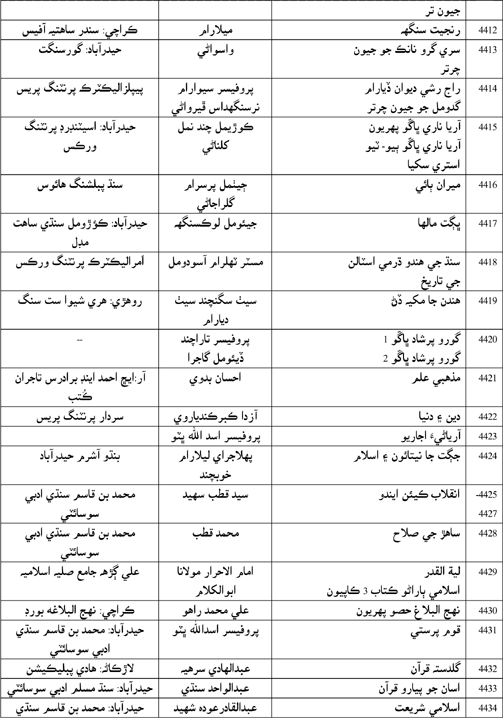 جيون تر
4412 رنجيت سنگهہ ميلارام ڪراچي: سندر ساهتيہ آفيس
4413 سري گرو نانڪ جو جيون واسواڻي حيدرآباد: گورسنگت
چرتر
4414 راج رشي ديوان ڏيارام پروفيسر سيوارام پيپلزاليڪٽرڪ پرنٽنگ پريس
گدومل جو جيون چرتر نرسنگهداس ڦيرواڻي
4415 آريا ناري ڀاڱو پهريون ڪوڙيمل چند نمل حيدرآباد: اسٽينڊرڊ پرنٽنگ
آريا ناري ڀاڱو ٻيو- ٽيو کلناڻي ورڪس
استري سکيا
4416 ميران ٻائي ڄيٺمل پرسرام سنڌ پبلشنگ هائوس
گلراجاڻي
4417 ڀڳت مالها جيئومل لوڪسنگهہ حيدرآباد: ڪوڙومل سنڌي ساهت
مڊل
4418 سنڌ جي هندو ڌرمي اسٿانن مسٽر ٽهلرام آسودومل امراليڪٽرڪ پرنٽنگ ورڪس
جي تاريخ
4419 هندن جا مکيہ ڏڻ سيٺ سگنچند سيٺ روهڙي: هري شيوا ست سنگ
ديارام
4420 گورو پرشاد ڀاڱو 1 پروفيسر تاراچند --
گورو پرشاد ڀاڱو 2 ڏيئومل گاجرا
4421 مذهبي علم احسان بدوي آر:ايڇ احمد اينڊ برادرس تاجران
ڪُتب
4422 دين ۽ دنيا آزدا ڪبرڪنڊياروي سردار پرنٽنگ پريس
4423 آرياڻيءَ اجاريو پروفيسر اسد الله ڀٽو
4424 جڳت جا نيتائون ۽ اسلام پهلاجراءِ ليلارام ٻنڌو آشرم حيدرآباد
خوبچند
4425- انقلاب ڪيئن ايندو سيد قطب سهيد محمد بن قاسم سنڌي ادبي
4427 سوسائٽي
4428 ساهڙ جي صلاح محمد قطب محمد بن قاسم سنڌي ادبي
سوسائٽي
4429 لية القدر امام الاحرار مولانا علي ڳڙهہ جامع صليہ اسلاميہ
اسلامي ٻاراڻو ڪتاب 3 ڪاپيون ابوالڪلام
4430 نهج البلاغ حصو پهريون علي محمد راهو ڪراچي: نهج البلاغہ بورڊ
4431 قوم پرستي پروفيسر اسدالله ڀٽو حيدرآباد: محمد بن قاسم سنڌي
ادبي سوسائٽي
4432 گلدستہ قرآن عبدالهادي سرهيہ لاڙڪاڻہ: هادي پبليڪيشن
4433 اسان جو پيارو قرآن عبدالواحد سنڌي حيدرآباد: سنڌ مسلم ادبي سوسائٽي
4434 اسلامي شريعت عبدالقادرعوده شهيد حيدرآباد: محمد بن قاسم سنڌي